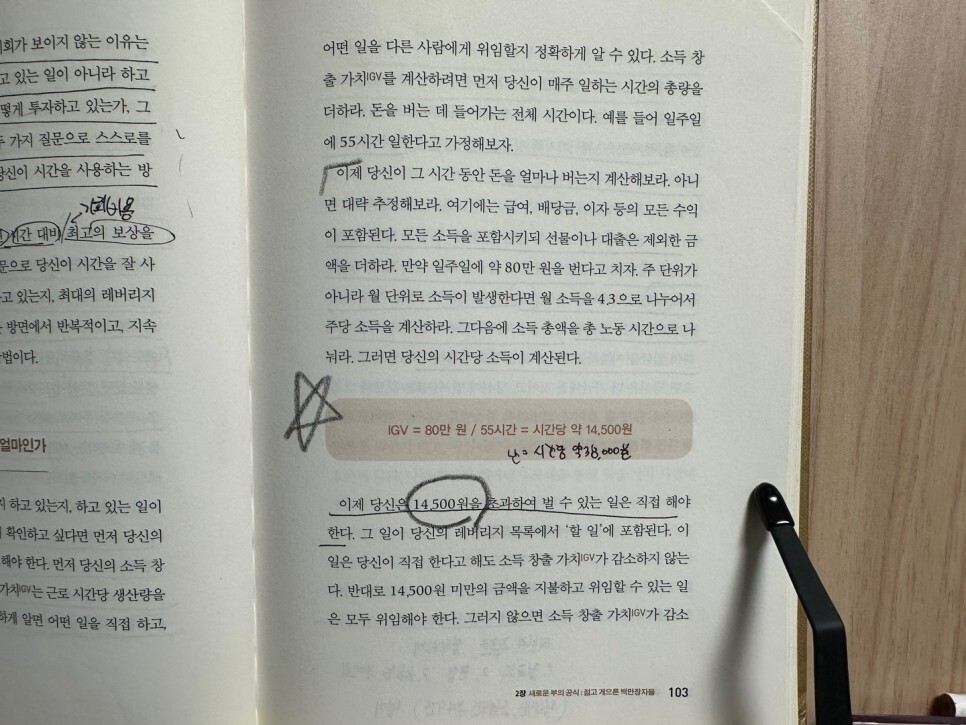 회가 보이지 않는 이유는
고 있는 일이 아니라 하고
떻게 투자하고 있는가, 그
가지 질문으로 스스로를
당신이 시간을 사용하는 방
기회비용
시간 대비 최고의 보상을
문으로 당신이 시간을 잘 사
고 있는지, 최대의 레버리지
방면에서 반복적이고, 지속
법이다.
얼마인가
하고 있는지, 하고 있는 일이
확인하고 싶다면 먼저 당신의
해야 한다. 먼저 당신의 소득 창
가치IGV는 근로 시간당 생산량을
하게 알면 어떤 일을 직접 하고,
어떤 일을 다른 사람에게 위임할지 정확하게 알 수 있다. 소득 창
출 가치IGV를 계산하려면 먼저 당신이 매주 일하는 시간의 총량을
더하라. 돈을 버는 데 들어가는 전체 시간이다. 예를 들어 일주일
에 55시간 일한다고 가정해보자.
이제 당신이 그 시간 동안 돈을 얼마나 버는지 계산해보라. 아니
면 대략 추정해보라. 여기에는 급여, 배당금, 이자 등의 모든 수익
이 포함된다. 모든 소득을 포함시키되 선물이나 대출은 제외한 금
액을 더하라. 만약 일주일에 약 80만 원을 번다고 치자. 주 단위가
아니라 월 단위로 소득이 발생한다면 월 소득을 4.3으로 나누어서
주당 소득을 계산하라. 그다음에 소득 총액을 총 노동 시간으로 나
눠라. 그러면 당신의 시간당 소득이 계산된다.
IGV = 80만 원 / 55시간 = 시간당 약 14,500원
난 = 시간당 약 38,000원
이제 당신은 14,500원을 초과하여 벌 수 있는 일은 직접 해야
한다. 그 일이 당신의 레버리지 목록에서 ‘할 일’에 포함된다. 이
일은 당신이 직접 한다고 해도 소득 창출 가치IGV가 감소하지 않는
다. 반대로 14,500원 미만의 금액을 지불하고 위임할 수 있는 일
은 모두 위임해야 한다. 그러지 않으면 소득 창출 가치IGV가 감소
2장 새로운 부의 공식 : 젊고 게으른 백만장자들 103